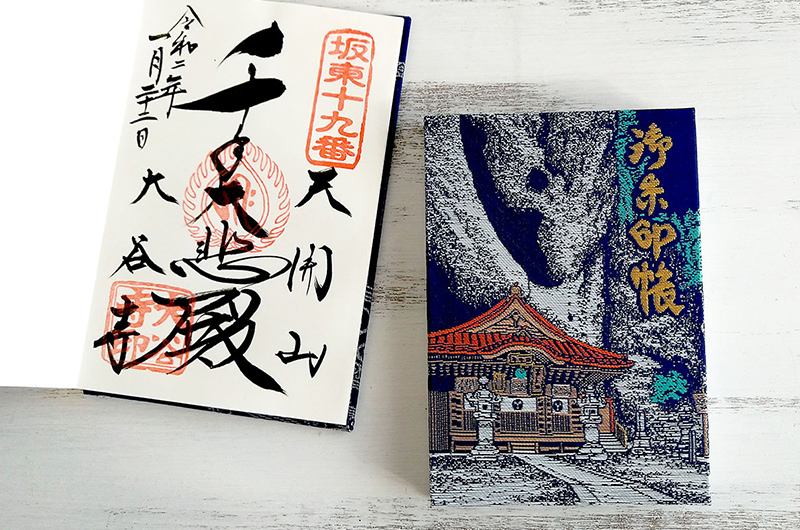 坂東十九番
天開山
千手大悲殿
令和二年
一月二十二日
大谷寺
大谷
寺印
御朱印帳